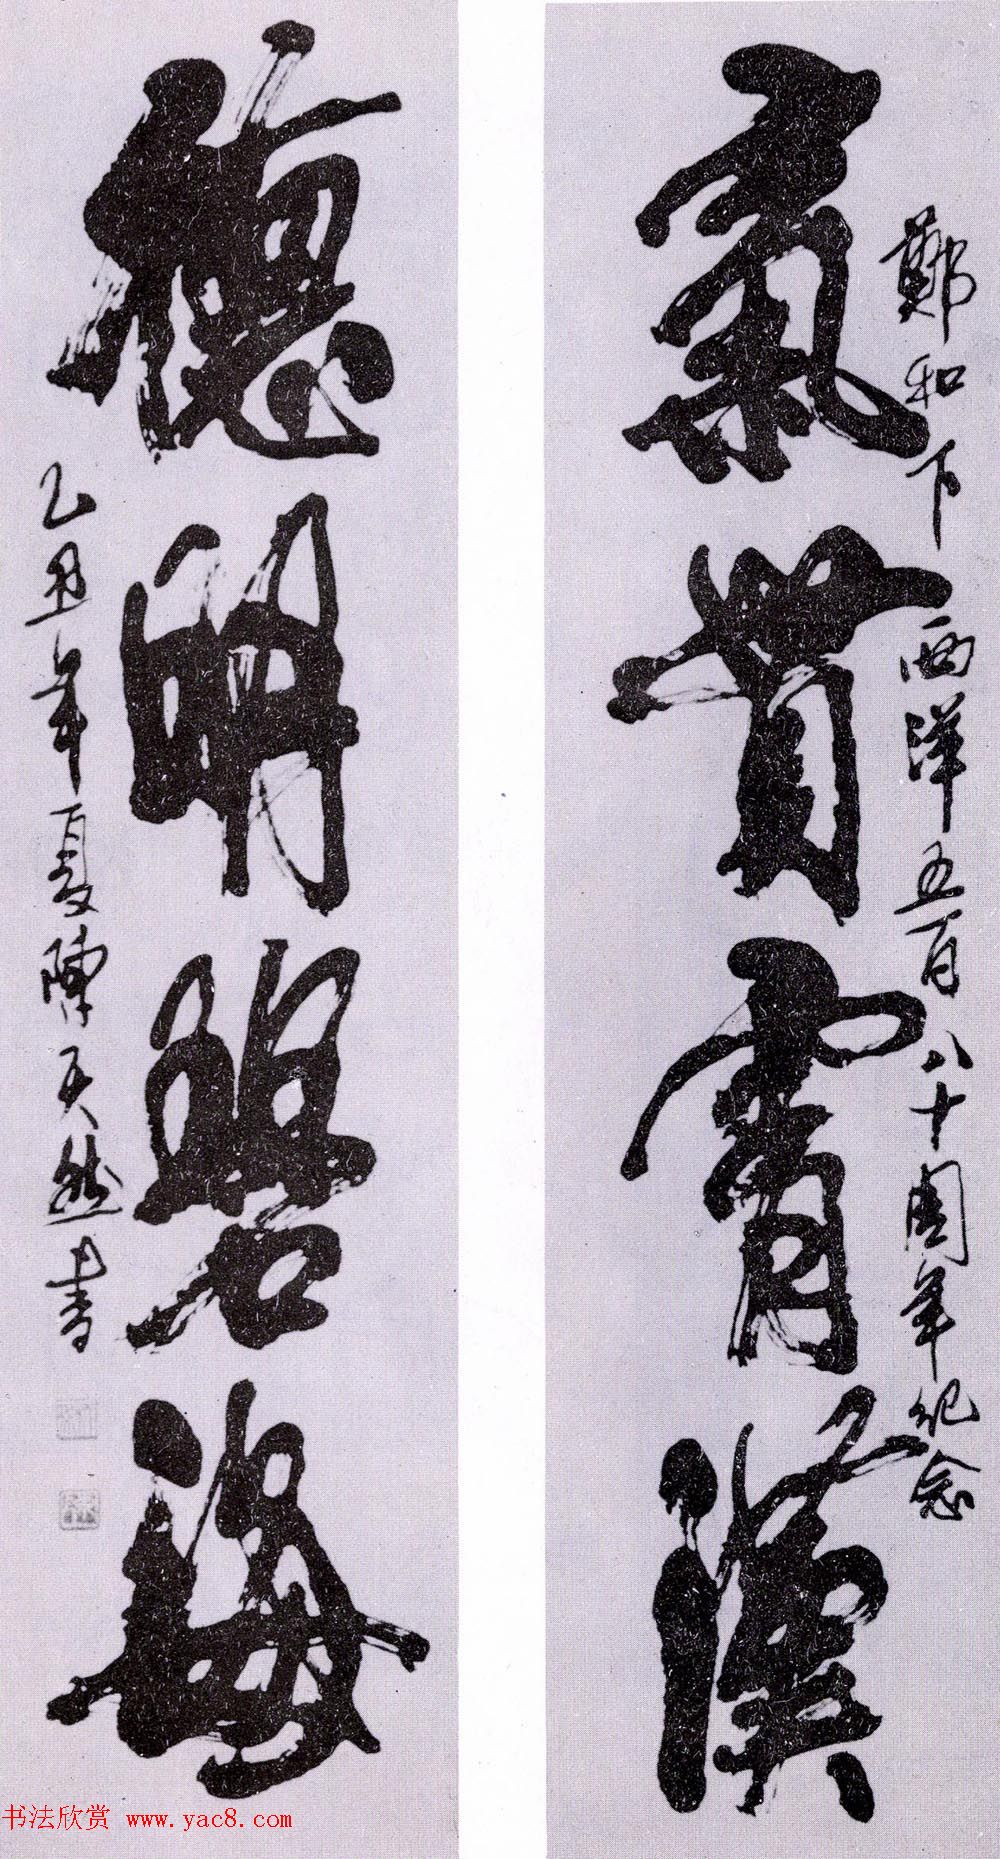 鄭和下西洋五百八十周年纪念
氣貫霄漢
德明碧海
乙丑年夏陳天然书
书法欣赏 www.yac8.com